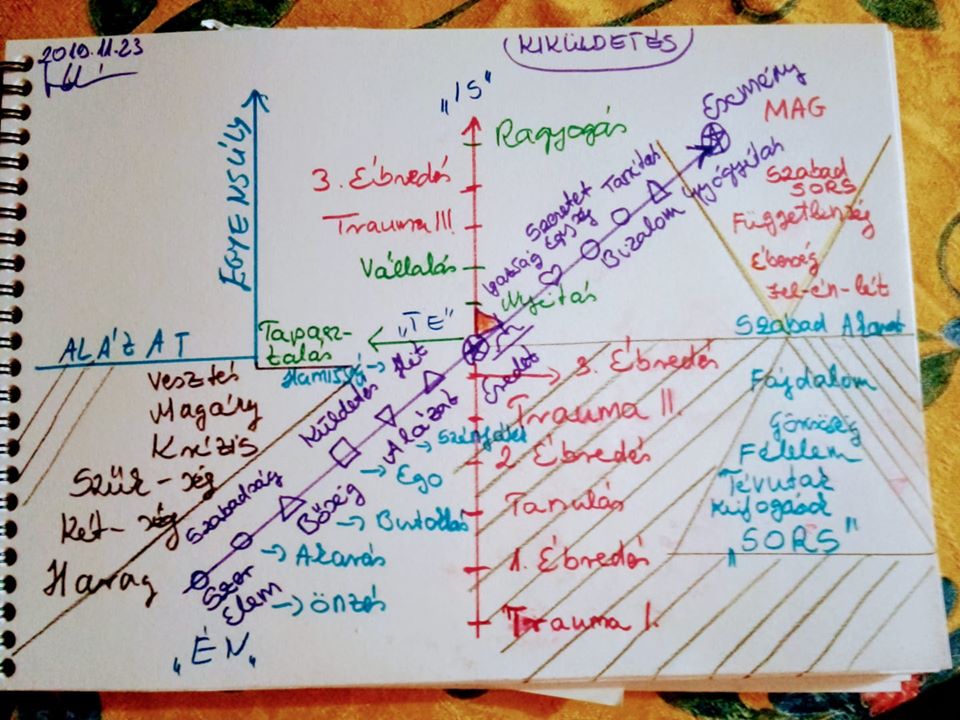 2019.11.23
KIKÜLDETÉS
EGYENSÚLY
ALÁZAT
„IS"
Ragyogás
3. Ébredés
Trauma III.
Vállalás
Nyitás
„TE"
Tapasz-
talás
Esemény
Gyógyítás
Tanítás
Szeretet
Egység
Igazság
Bizalom
Hit
Eredet
Küldetés
Alázat
Szabadság
Bőség
Elem
„ÉN"
MAG
Szabad
SORS
Függetlenség
Éberség
Fel-én-lét
Szabad Akarat
Fájdalom
Félelem
Tévutak
Kifogások
„SORS"
Vesztés
Magány
Krízis
Szük-ség
Két-ség
Harag
Hamisság →
→ Színjáték
→ Ego
→ Butaság
→ Akarás
→ Önzés
3. Ébredés
Trauma II.
2 Ébredés
Tanulás
1. Ébredés
Trauma I.